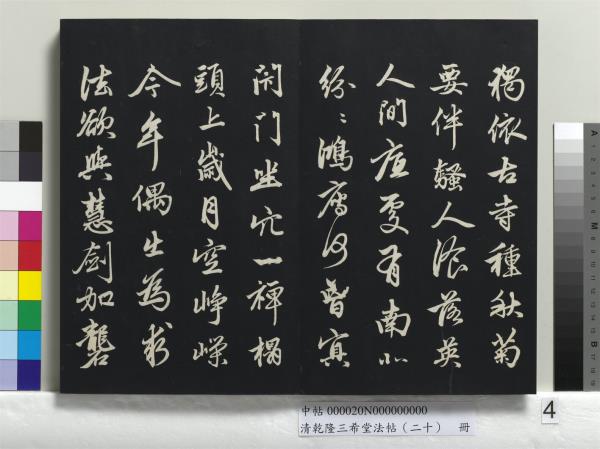 獨依古寺種秋菊
要伴騷人飡落英
人間底處有南北
紛〻鴻鴈何曾冥
閉門坐穴一禪榻
頭上歲月空崢嶸
今年偶出為求
法欲與慧劍加礱
中帖 000020N000000000
清乾隆三希堂法帖（二十） 冊
4